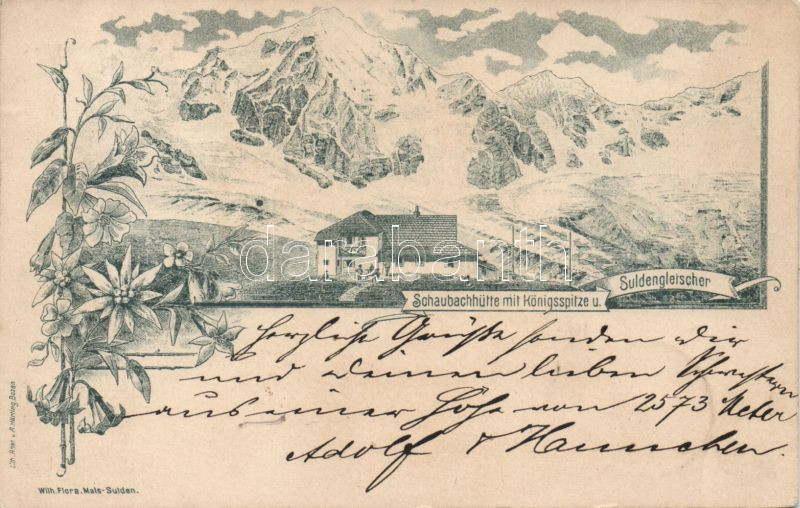 Suldengleischer
Schaubachhütte mit Königsspitze u.
darabanth
herzliche Grüsse senden dir
und deinen lieben Schwestern
aus einer Höhe von 2573 Meter
Adolf & Hannchen.
Lith. Anst. v. A. Herting, Bozen
Wilh. Flora. Mals-Sulden.